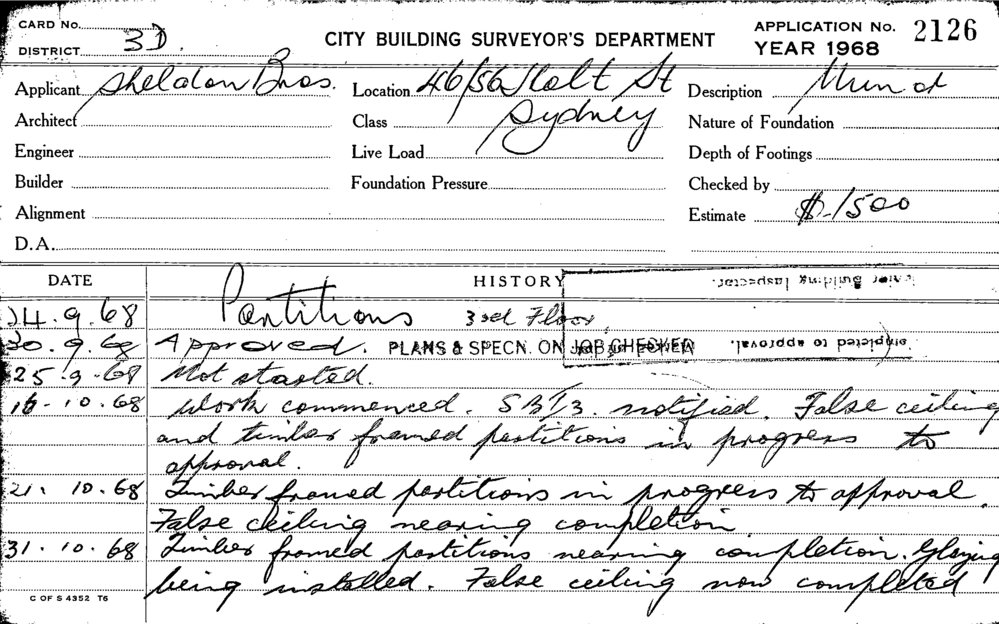 CARD No.
DISTRICT 3D.
CITY BUILDING SURVEYOR'S DEPARTMENT
APPLICATION No. 2126
YEAR 1968
Applicant Sheldon Bros. Location 46/56 Holt St Description
Architect Class Sydney Nature of Foundation
Engineer Live Load Depth of Footings
Builder Foundation Pressure Checked by
Alignment Estimate $-1500
D.A.
DATE HISTORY
Building Inspector.
24.9.68 Partitions 3rd Floor
30.9.68 Approved. PLANS & SPECN. ON JOB CHECKED
to approval.
25.9.68 Not started.
16-10.68 Work commenced. SBI/3. notified. False ceiling
and timber framed partitions in progress to
approval.
21. 10.68 Timber framed partitions in progress to approval.
False ceiling nearing completion
31.10.68 Timber framed partitions nearing completion. Glazing
being installed. False ceiling now completed
C OF S 4352 T6